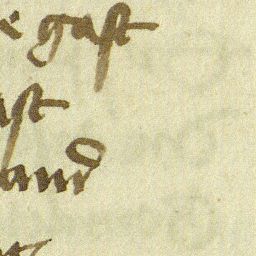 e gast
ast
and